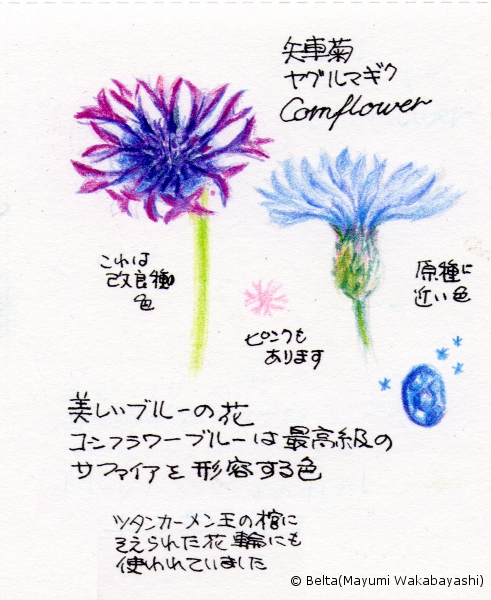 矢車菊
ヤグルマギク
Cornflower
これは
改良種
色
原種に
近い色
ピンクも
あります
美しいブルーの花
コンフラワーブルーは最高級の
サファイアを形容する色
ツタンカーメン王の棺に
そえられた花輪にも
使われていました
© Belta(Mayumi Wakabayashi)